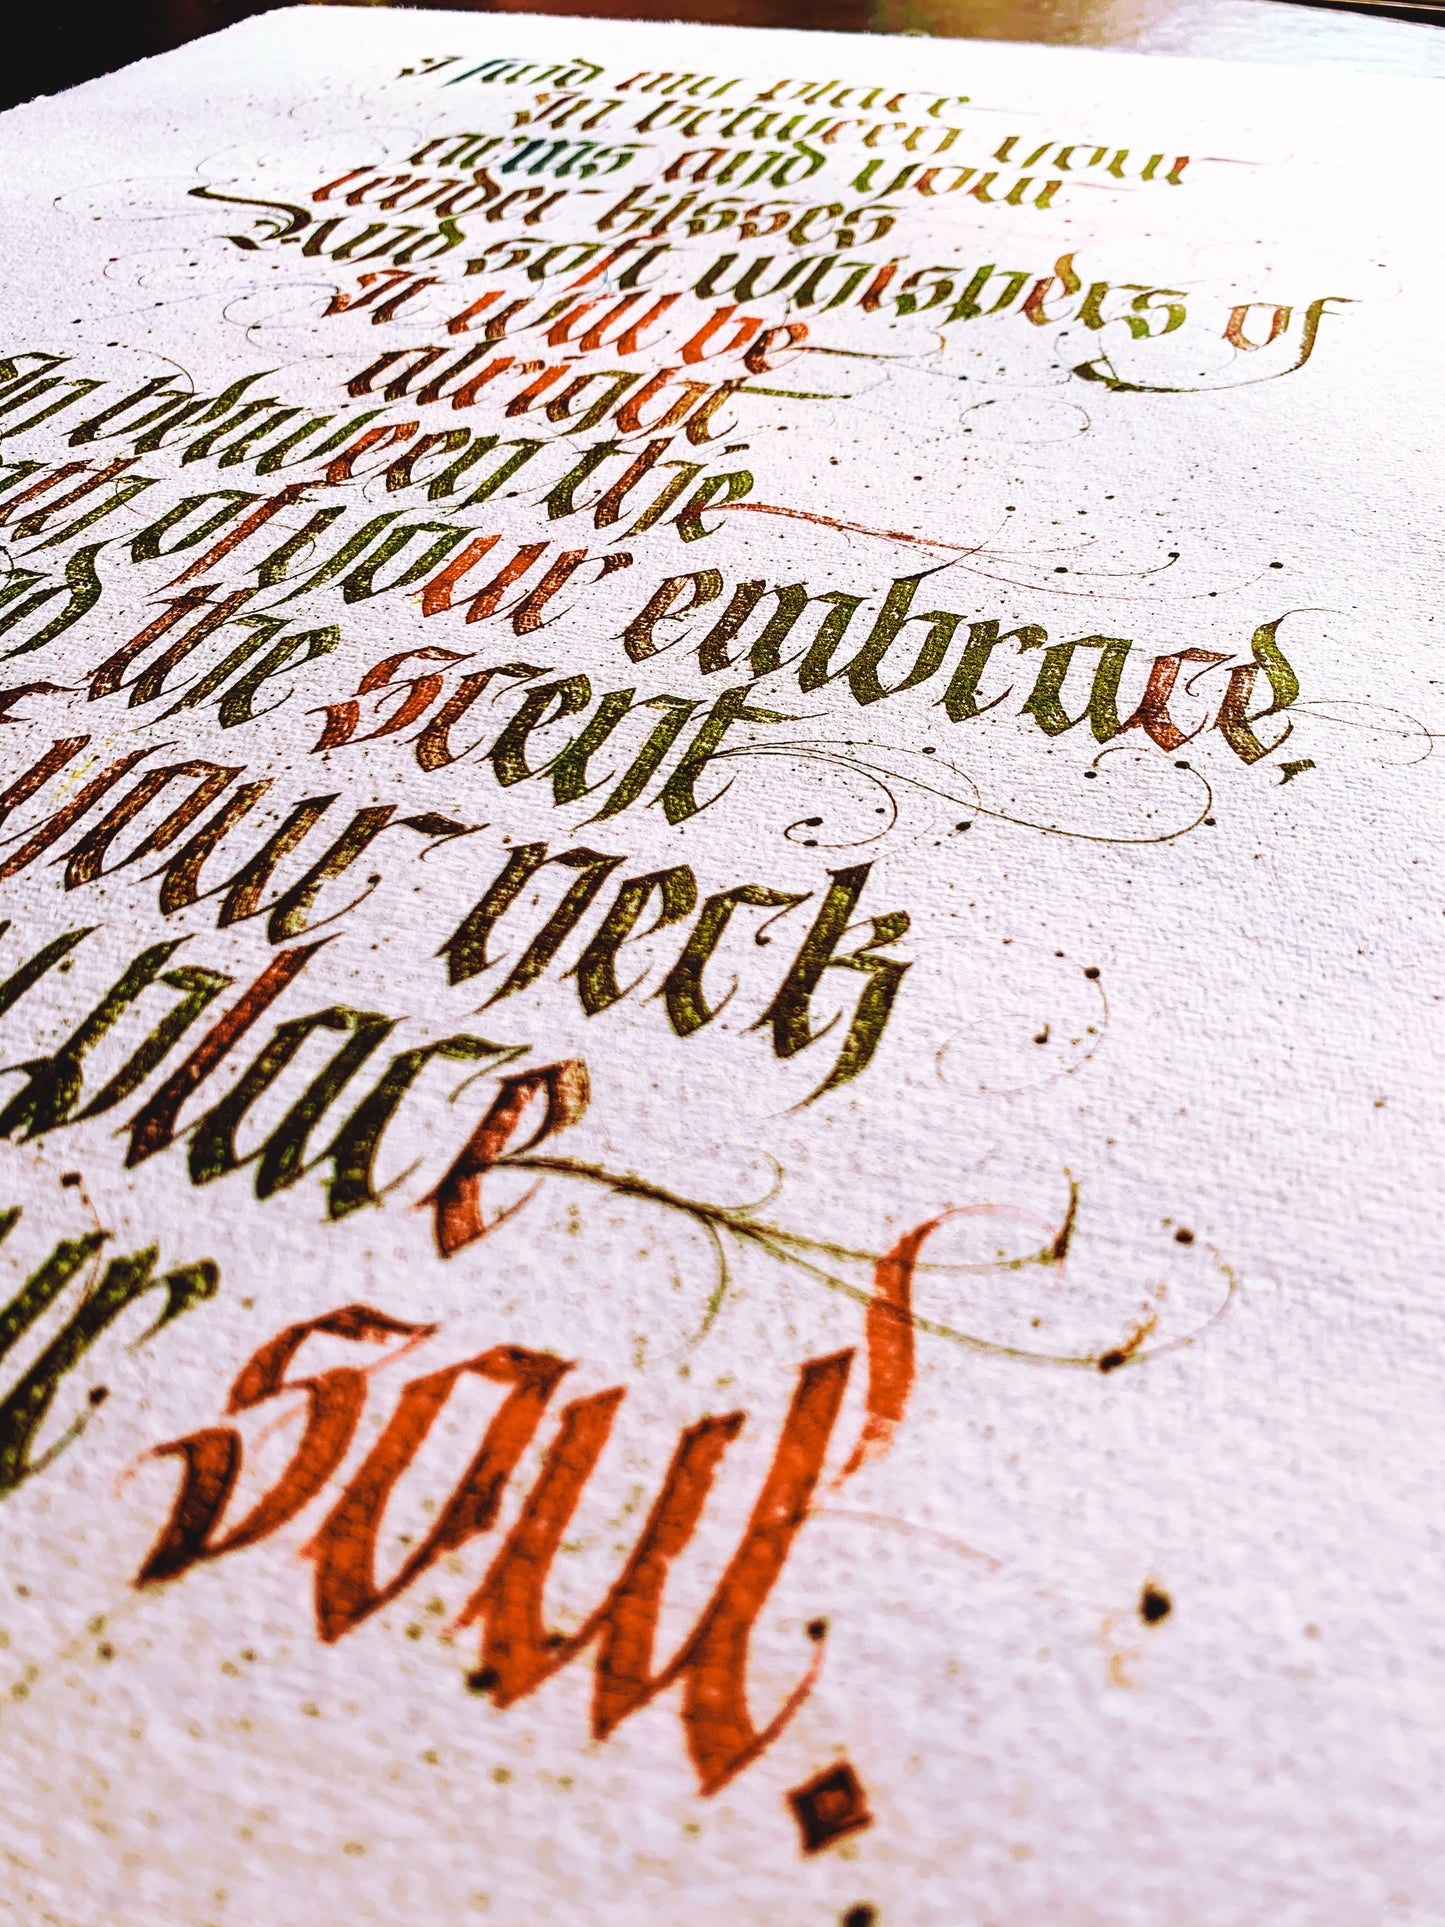 I find my place
In between your
arms and your
tender kisses
And soft whispers of
It will be
alright
In between the
of your embrace,
the scent
your neck
place
soul.